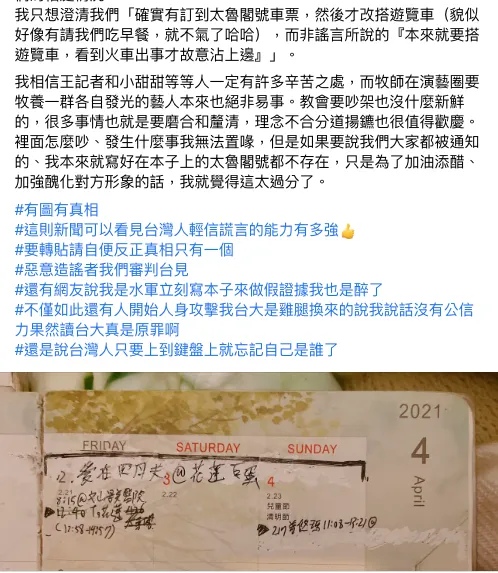 我只想澄清我們「確實有訂到太魯閣號車票，然後才改搭遊覽車（貌似
好像有請我們吃早餐，就不氣了哈哈），而非謠言所說的『本來就要搭
遊覽車，看到火車出事才故意沾上邊』」。
我相信王記者和小甜甜等等人一定有許多辛苦之處，而牧師在演藝圈要
牧養一群各自發光的藝人本來也絕非易事。教會要吵架也沒什麼新鮮
的，很多事情也就是要磨合和釐清，理念不合分道揚鑣也很值得歡慶。
裡面怎麼吵、發生什麼事我無法置喙，但是如果要說我們大家都被通知
的、我本來就寫好在本子上的太魯閣號都不存在，只是為了加油添醋、
加強醜化對方形象的話，我就覺得這太過分了。
#有圖有真相
#這則新聞可以看見台灣人輕信謊言的能力有多強👍
#要轉貼請自便反正真相只有一個
#惡意造謠者我們審判台見
#還有網友說我是水軍立刻寫本子來做假證據我也是醉了
#不僅如此還有人開始人身攻擊我台大是雞腿換來的說我說話沒有公信
力果然讀台大真是原罪啊
#還是說台灣人只要上到鍵盤上就忘記自己是誰了
2021
4
April
FRIDAY SATURDAY SUNDAY
2. 愛在四月天@花蓮
3 4
2.21 2.22 2.23
兒童節
清明節